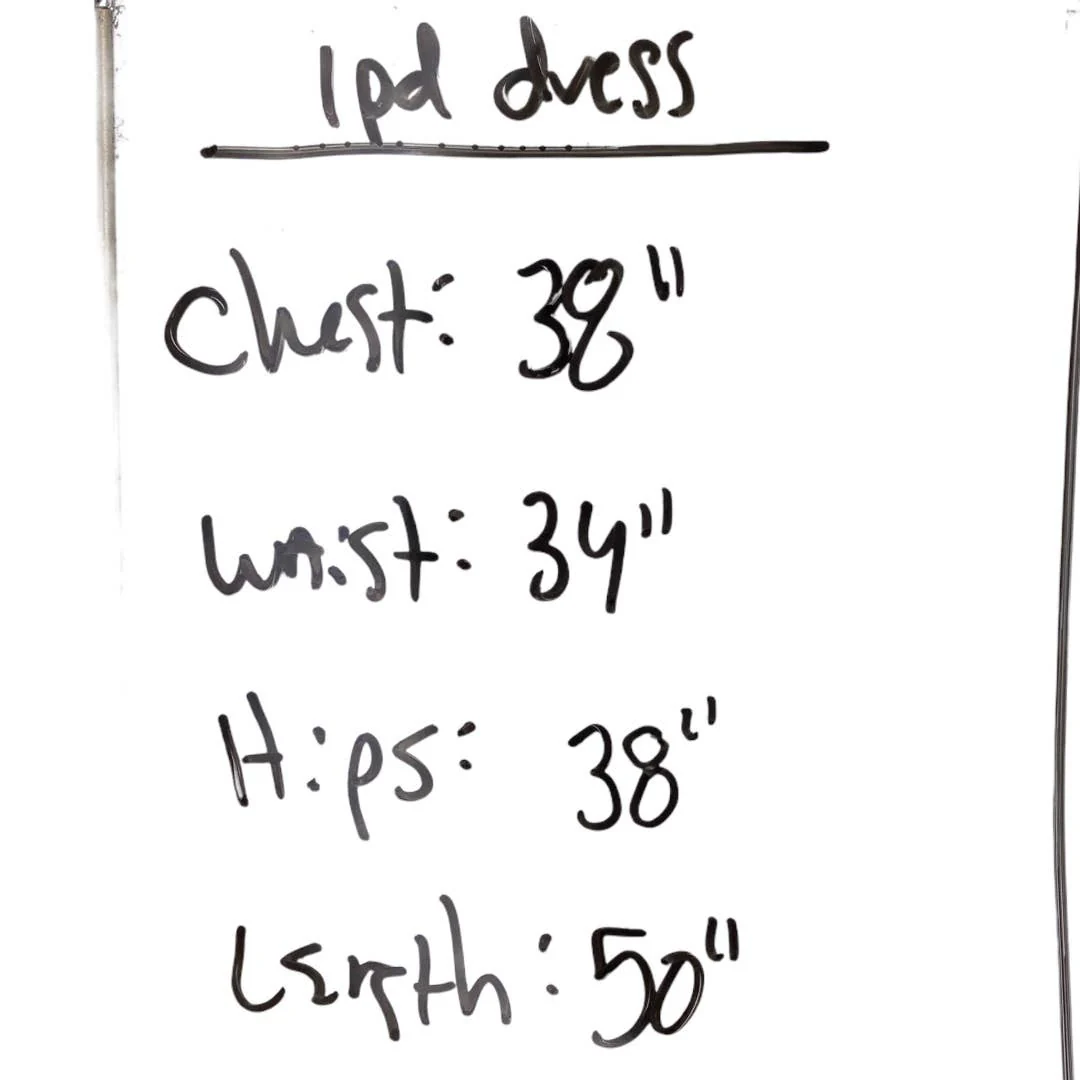 1pd dress
Chest: 38"
Waist: 34"
Hips: 38"
Length: 50"